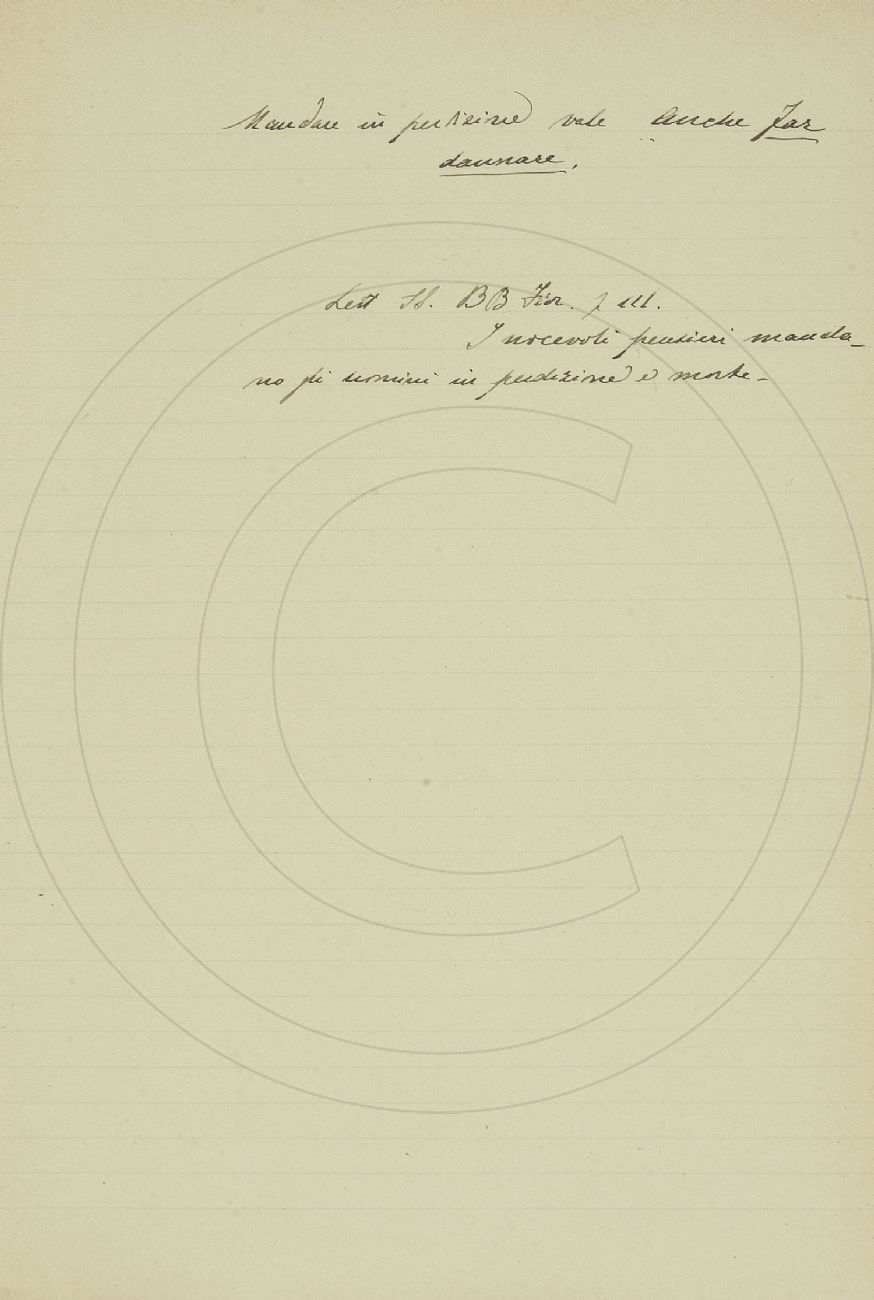 Mandare in perdizione vale Anche Far
dannare.
Lett SS. BB Fior. 
I nocevoli pensieri manda-
no gli uomini in perdizione e morte-